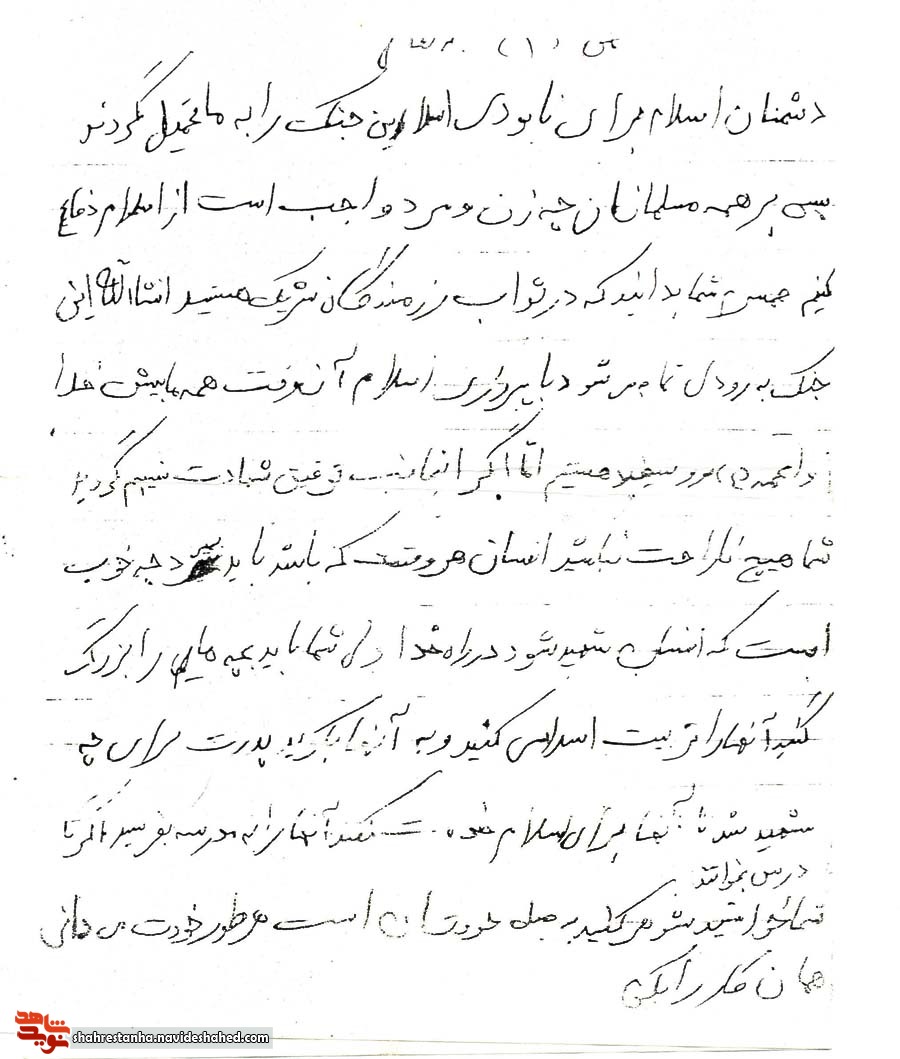 ص (۱)
دشمنان اسلام برای نابودی اسلام این جنگ را به ما تحمیل کردند
پس بر همه مسلمانان چه زن و مرد واجب است از اسلام دفاع
کنیم همسرم شما بدانید که در ثواب رزمندگان شریک هستید انشاالله این
جنگ به زودی تمام می شود با پیروزی اسلام آن وقت همه ما پیش خدا
و محمد (ص) رو سفید هستیم اما اگر اینجانب توفیق شهادت نصیبم گردید
شما هیچ ناراحت نباشید انسان هر وقت که باشد باید بمیرد چه خوب
است که انسان شهید شود در راه خدا ولی شما باید بچه هایم را بزرگ
کنید آنها را تربیت اسلامی کنید و به آنها بگویید پدرت برای چه
شهید شد تا آنها برای اسلام خدمت کنند آنها را به مدرسه بفرستید تا
درس بخوانند
شما خواستید شوهر کنید به میل خودتان است هر طور خودت می دانی
همان کار را بکن
شاهد
نوید
shahrestanha.navideshahed.com